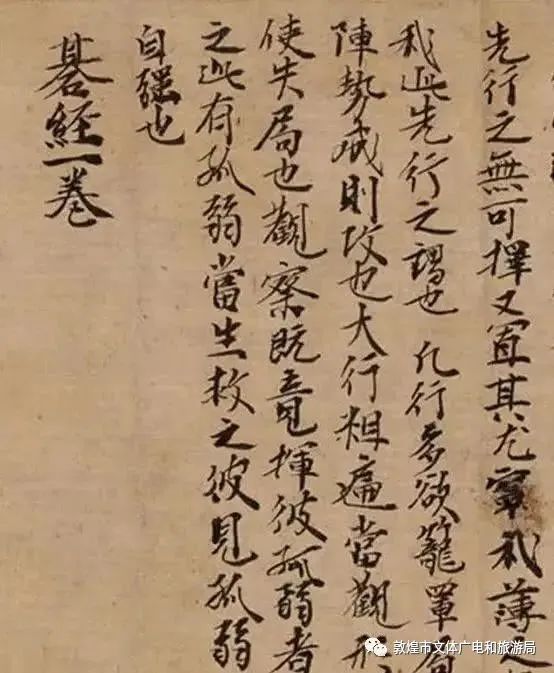 先行之無可擇又宜其尤窂我薄
我此先行之謂也 凡行多欲籠罩局
陣勢成則攻也大行粗遍當觀形
使失局也觀察既竟揮彼孤弱者
之此有孤弱當生救之彼見孤弱
自強也
碁經一卷
敦煌市文体广电和旅游局